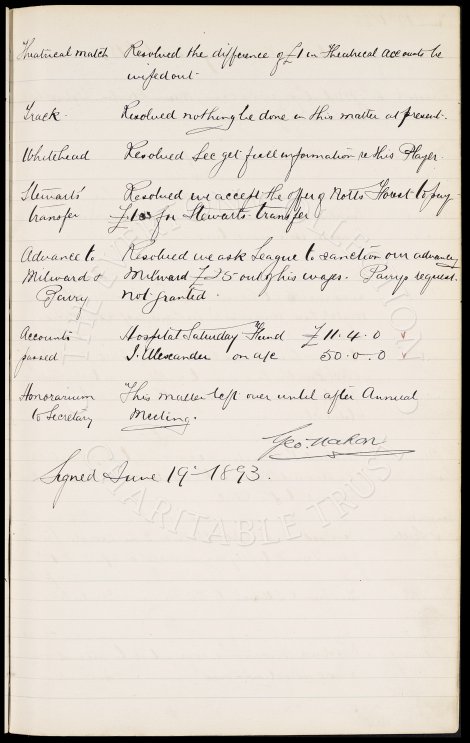 Theatrical match Resolved the difference of £1 in Theatrical accounts be
wiped out.
Track. Resolved nothing be done in this matter at present.
Whitehead Resolved Sec get full information re this Player.
Stewarts' Resolved we accept the offer of Notts Forest to pay
transfer £100 for Stewarts transfer
Advance to Resolved we ask League to sanction our advancing
Milward & Milward £25 out of his wages. Parrys request
Parry not granted.
Accounts Hospital Saturday Fund £11.4.0
passed J. Alexander on a/c 50.0.0
Honorarium This matter left over until after Annual
to Secretary Meeting.
Geo. Mahon
Signed June 19th 1893.
THE EVERTON COLLECTION
CHARITABLE TRUST